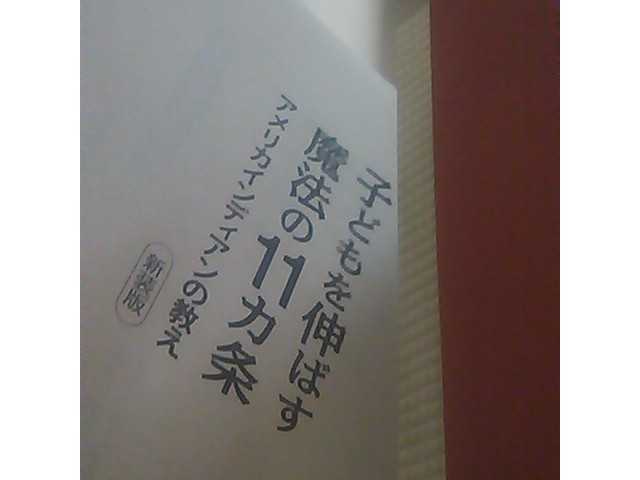 子どもを伸ばす
魔法の11カ条
アメリカインディアンの教え
新装版